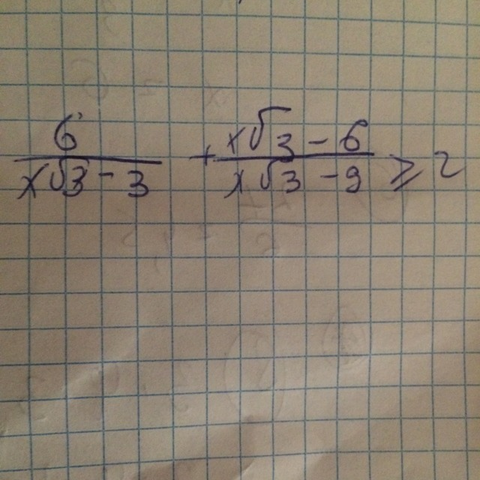 6 / x√3 - 3 + x√3 - 6 / x√3 - 9 ≥ 2